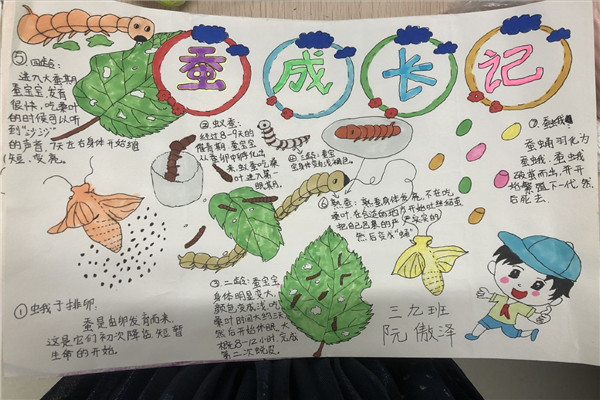 蚕成长记
⑤四龄:
进入大蚕期
蚕宝宝发育
很快,吃桑叶
的时候可以听
到"沙沙"
的声音,7天左右身体开始缩
短、发亮。
②蚁蚕:
经过8-9天的
催青期 蚕宝宝
从蚕卵中孵化出
来,蚁蚕吃桑
叶进入第一
眠期。
④三龄:蚕宝
⑦蚕蛾:
蚕蛹羽化为
蚕蛾,蚕蛾
破茧而出,开
始繁殖下一代,然
后死去。
⑥熟蚕:熟蚕身体发亮,不在吃
桑叶,在合适的地方开始吐丝结茧
把自己包裹的严严实实的
然后变成"蛹"
③二龄:蚕宝宝
身体明显变大,
颜色变成浅,吃
桑叶时间大约3天
然后开始休眠,大
概8-12小时,完成
第二次蜕皮。
①蛾子排卵:
蚕是由卵发育而来,
这是它们初次降临,短暂
生命的开始。
三九班
阮傲泽